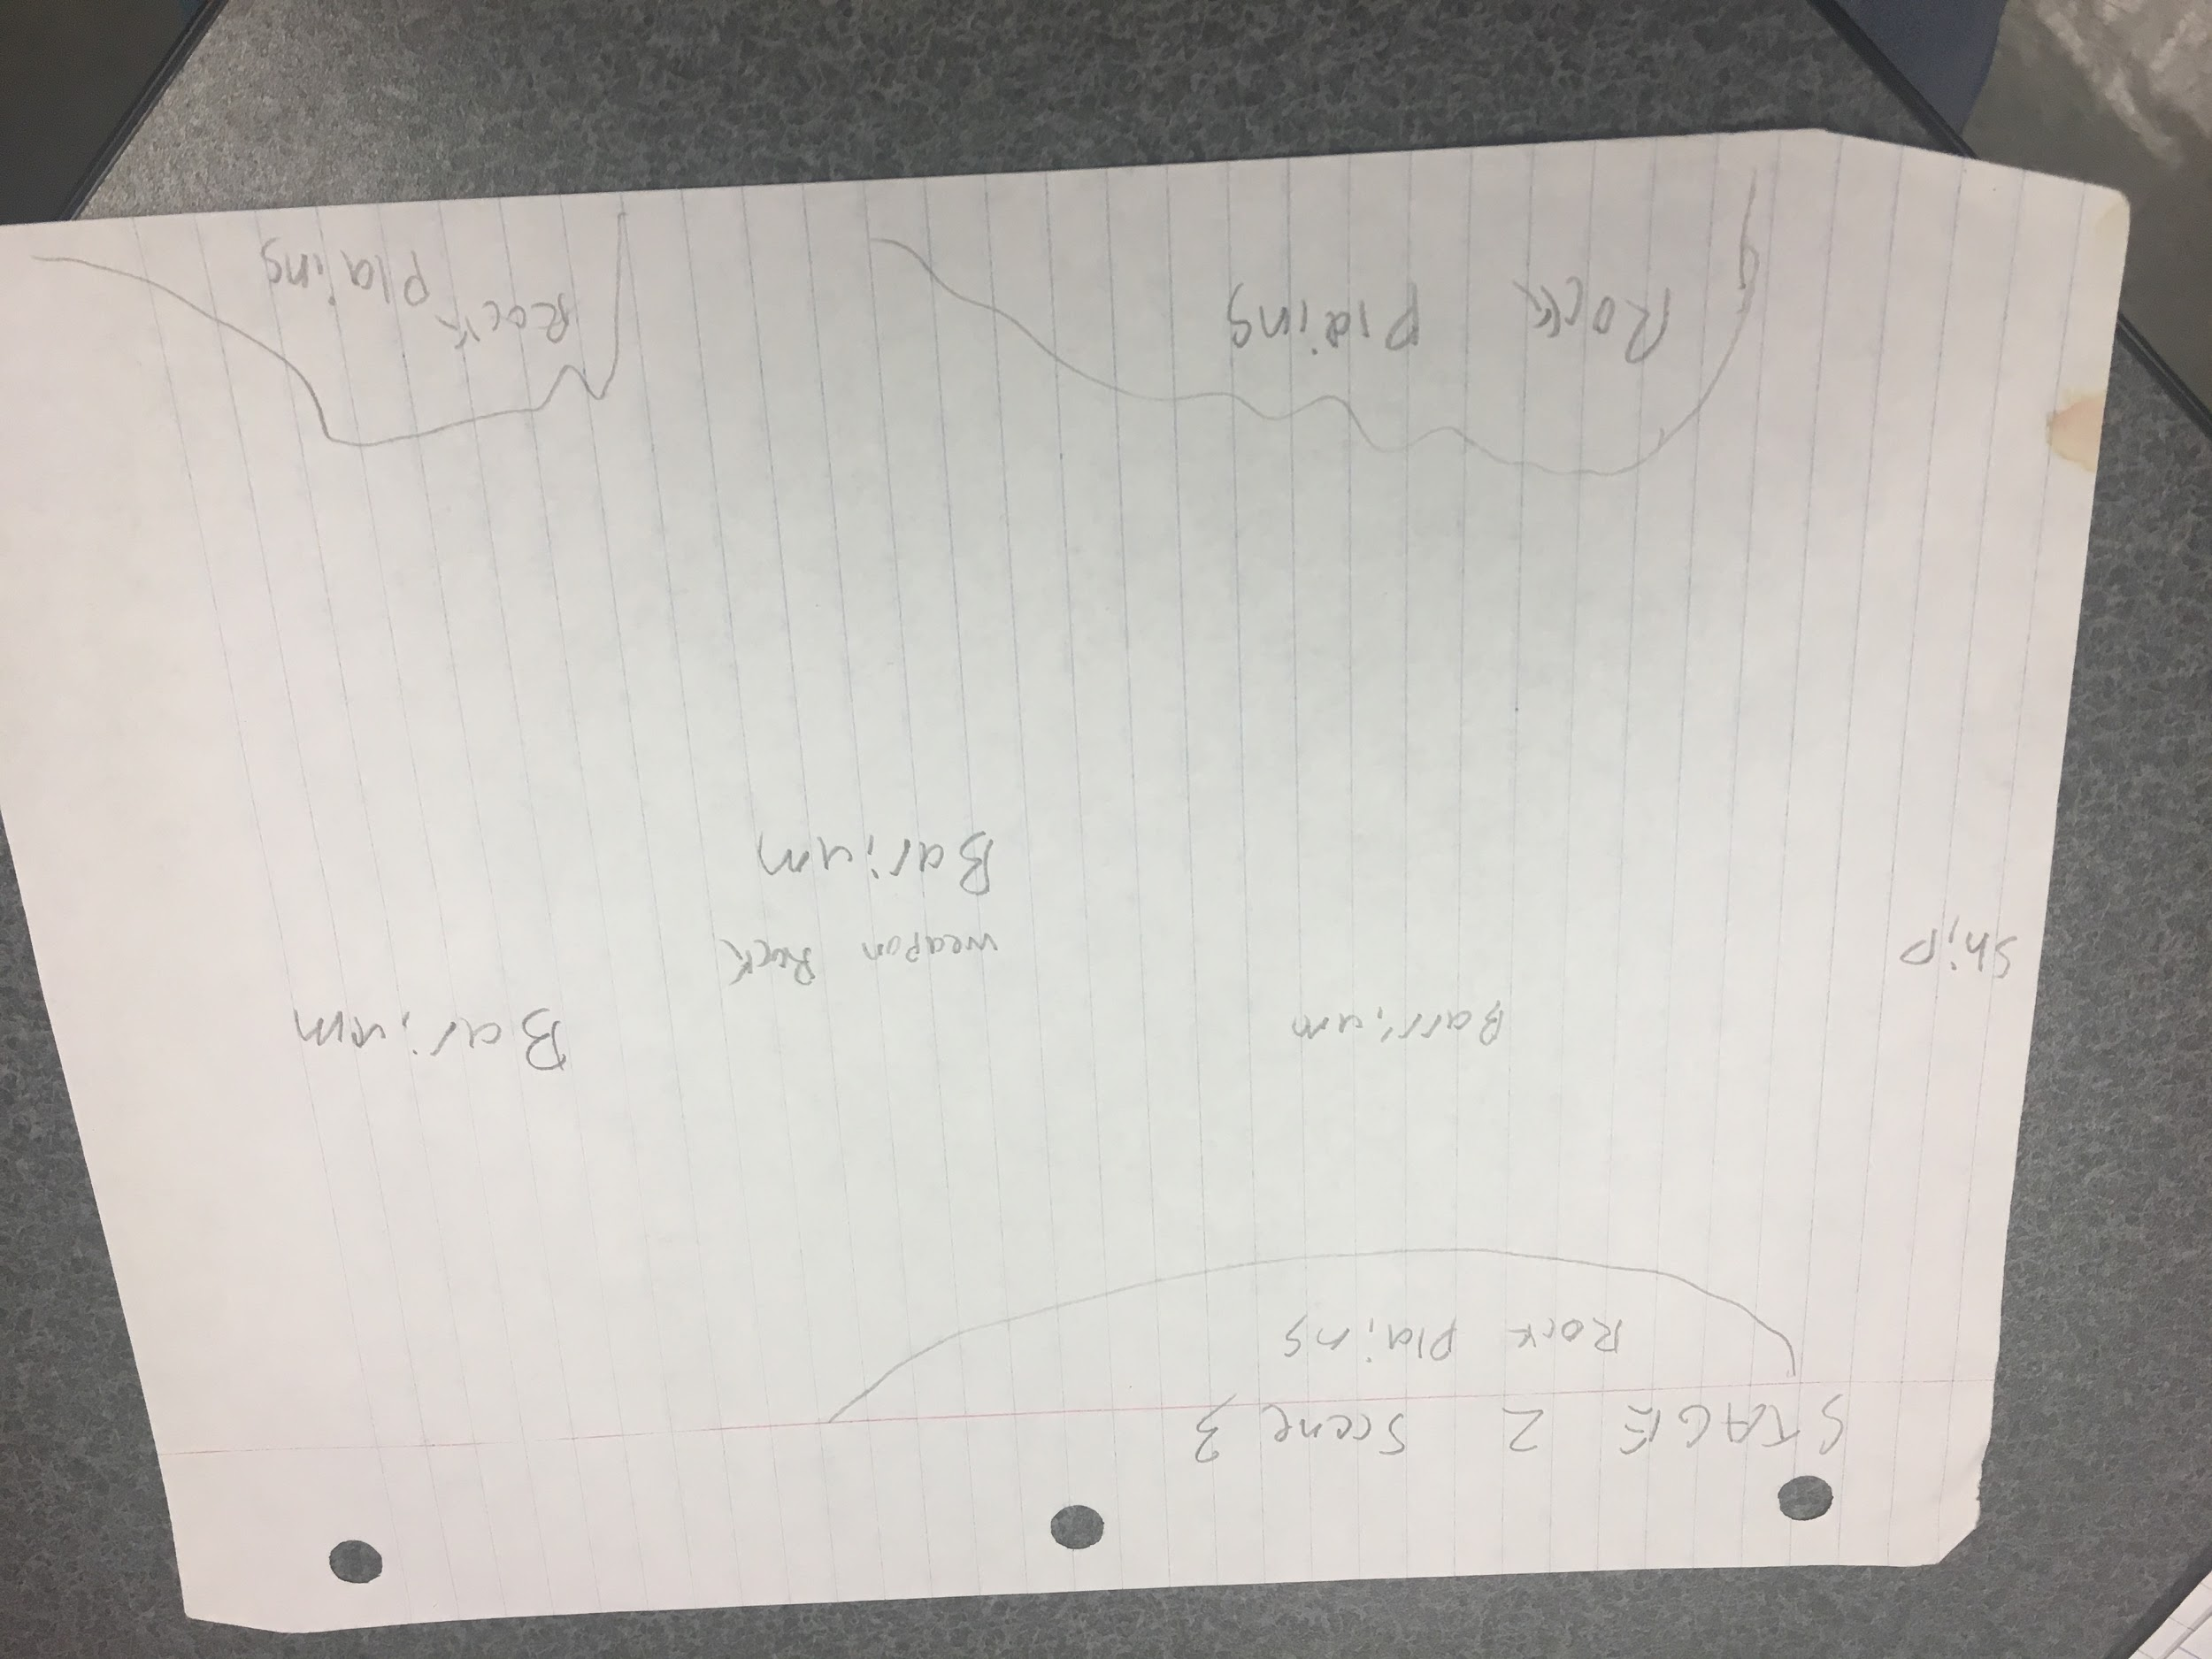 STAGE 2 Scene 3
Rock Plains
Barrium
Ship
Barium
weapon Rock
Barium
Rock Plains
Rock
Plains